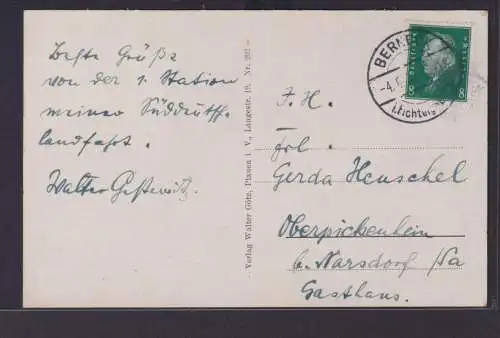 Beste Grüße
von der 1. Station
meiner Süddeutsch-
landfahrt.
Walter
- Verlag Walter Götz, Plauen i. V., Langestr. 19, Nr. 202 -
BERNE
-4.
(Fichtelg
8 8
F. H.
Frl.
Gerda Heuschel
Oberpickenhein
b. Narsdorf /Sa
Gasthaus.